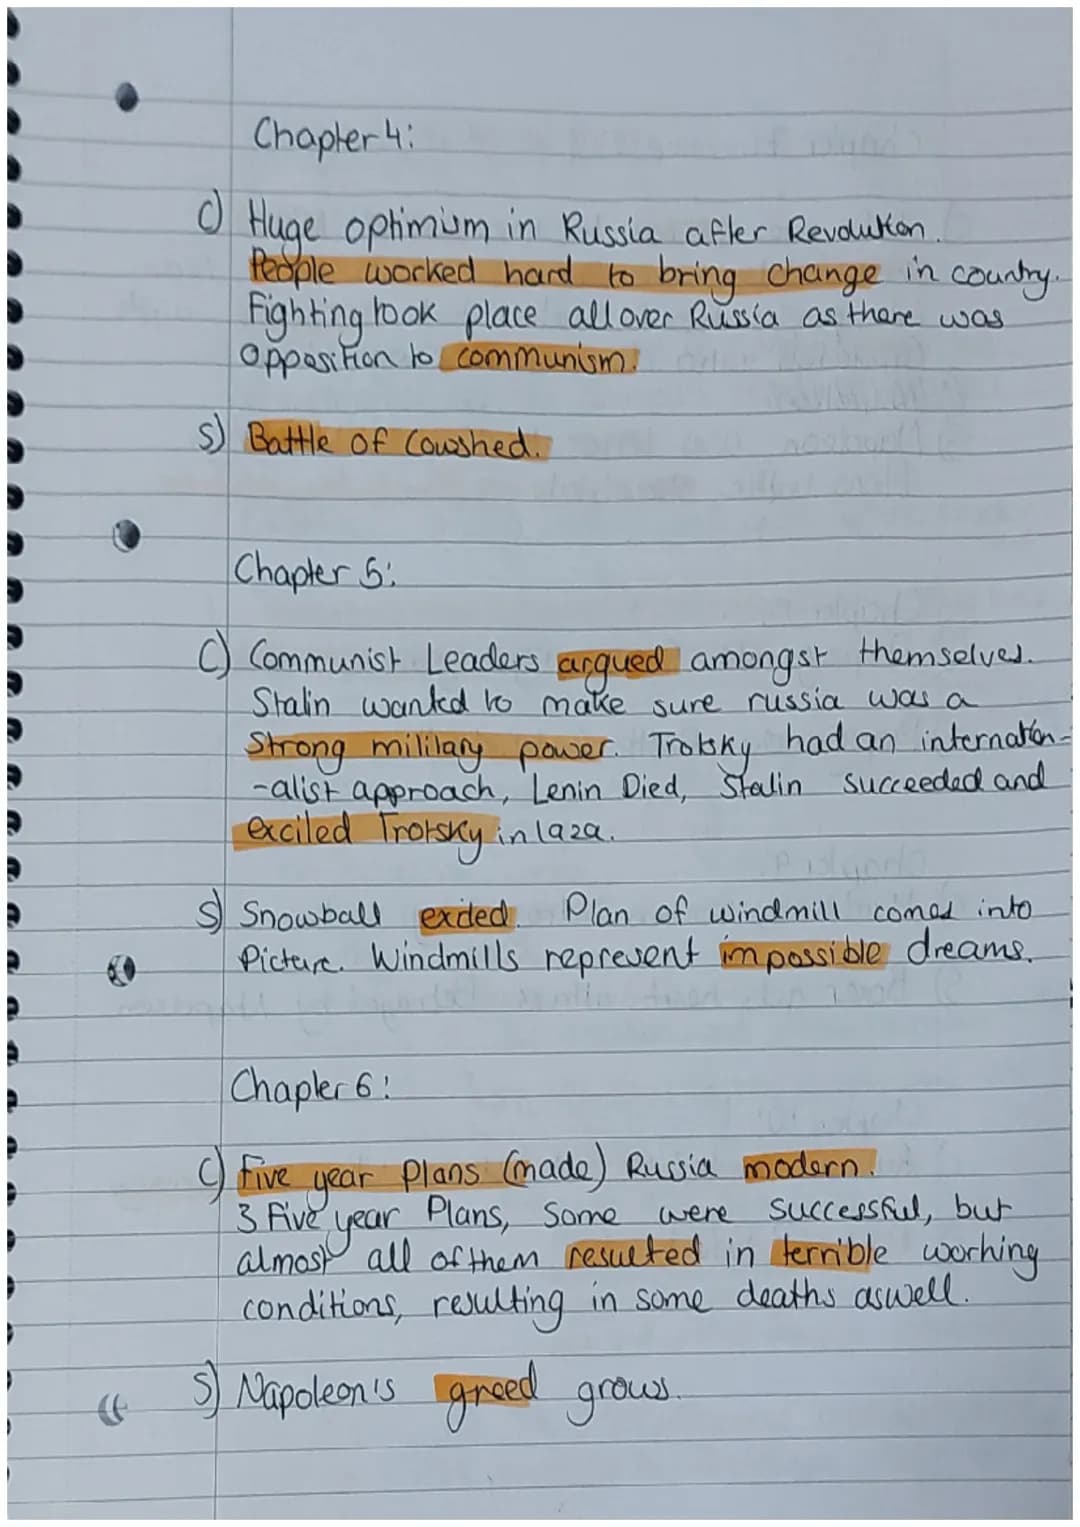 Chapter 4:
C) Huge optimism in Russia after Revolution.
People worked hard to bring change in country.
Fighting took place all over Russia as there was
opposition to communism.
S) Battle of Cowshed.
Chapter 5:
C) Communist Leaders argued amongst themselves.
Stalin wanted to make sure russia was a
Strong military power. Trotsky had an internation-
-alist approach, Lenin Died, Stalin Succeeded and
exciled Trotsky in 1929.
S) Snowball exciled. Plan of windmill comes into
Picture. Windmills represent impossible dreams.
Chapter 6:
C) Five year plans (made) Russia modern.
3 Five year Plans, Some were Successful, but
almost all of them resulted in terrible working
conditions, resulting in some deaths aswell.
S) Napoleon's greed grows.